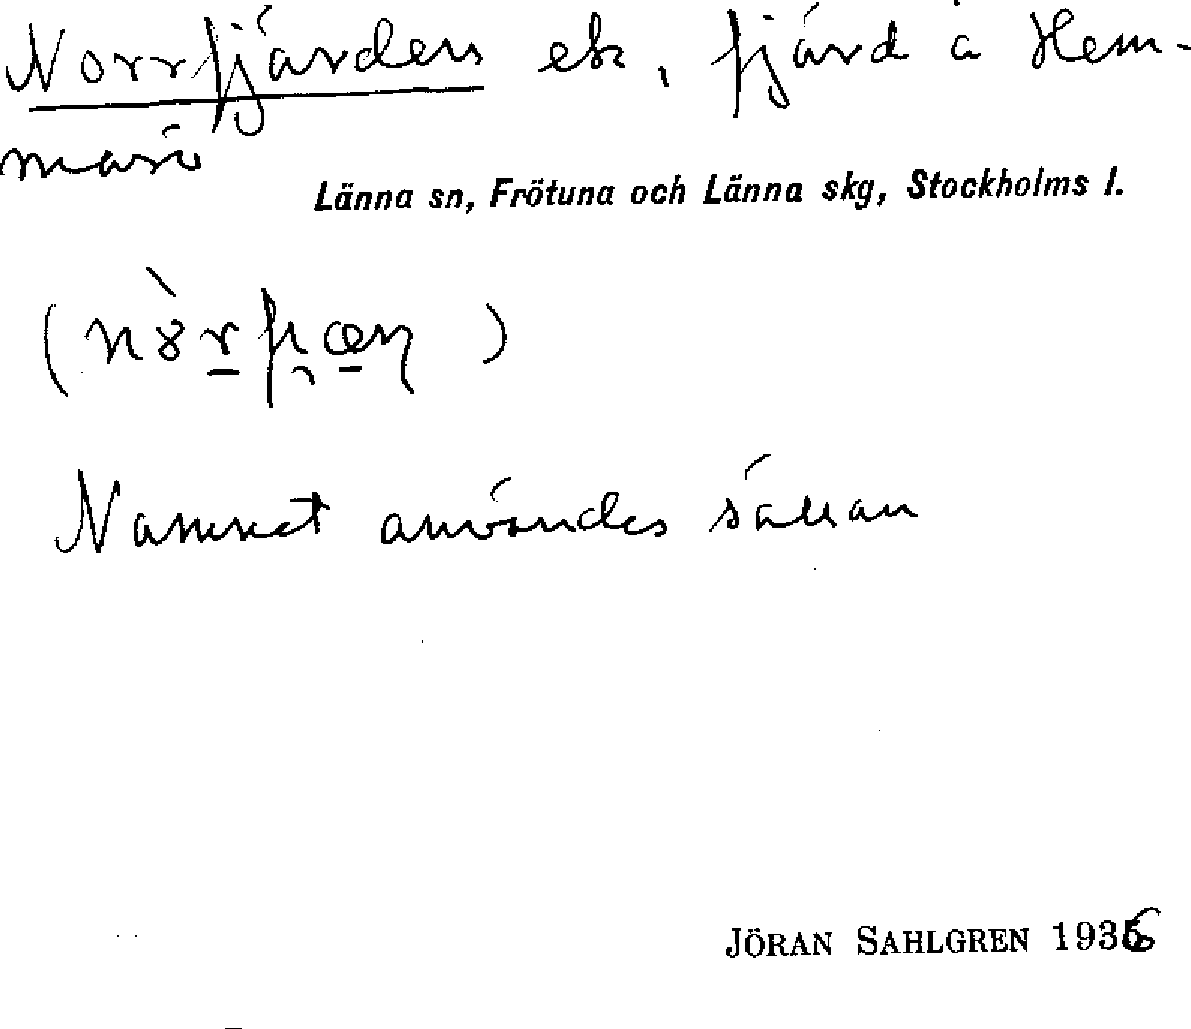 Norrfjärden ek, fjärd å Hem-
marö
Länna sn, Frötuna och Länna skg, Stockholms l.
Namnet användes sällan
JÖRAN SAHLGREN 1936